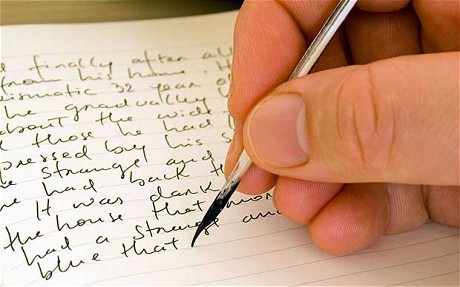 d finally after al
from his home. H
ismatic 32 year o
he gradually
about the wide
d those he had
pressed by his s
e strange and
he had back t
It was plank
the house that mor
had a strange an
blue that